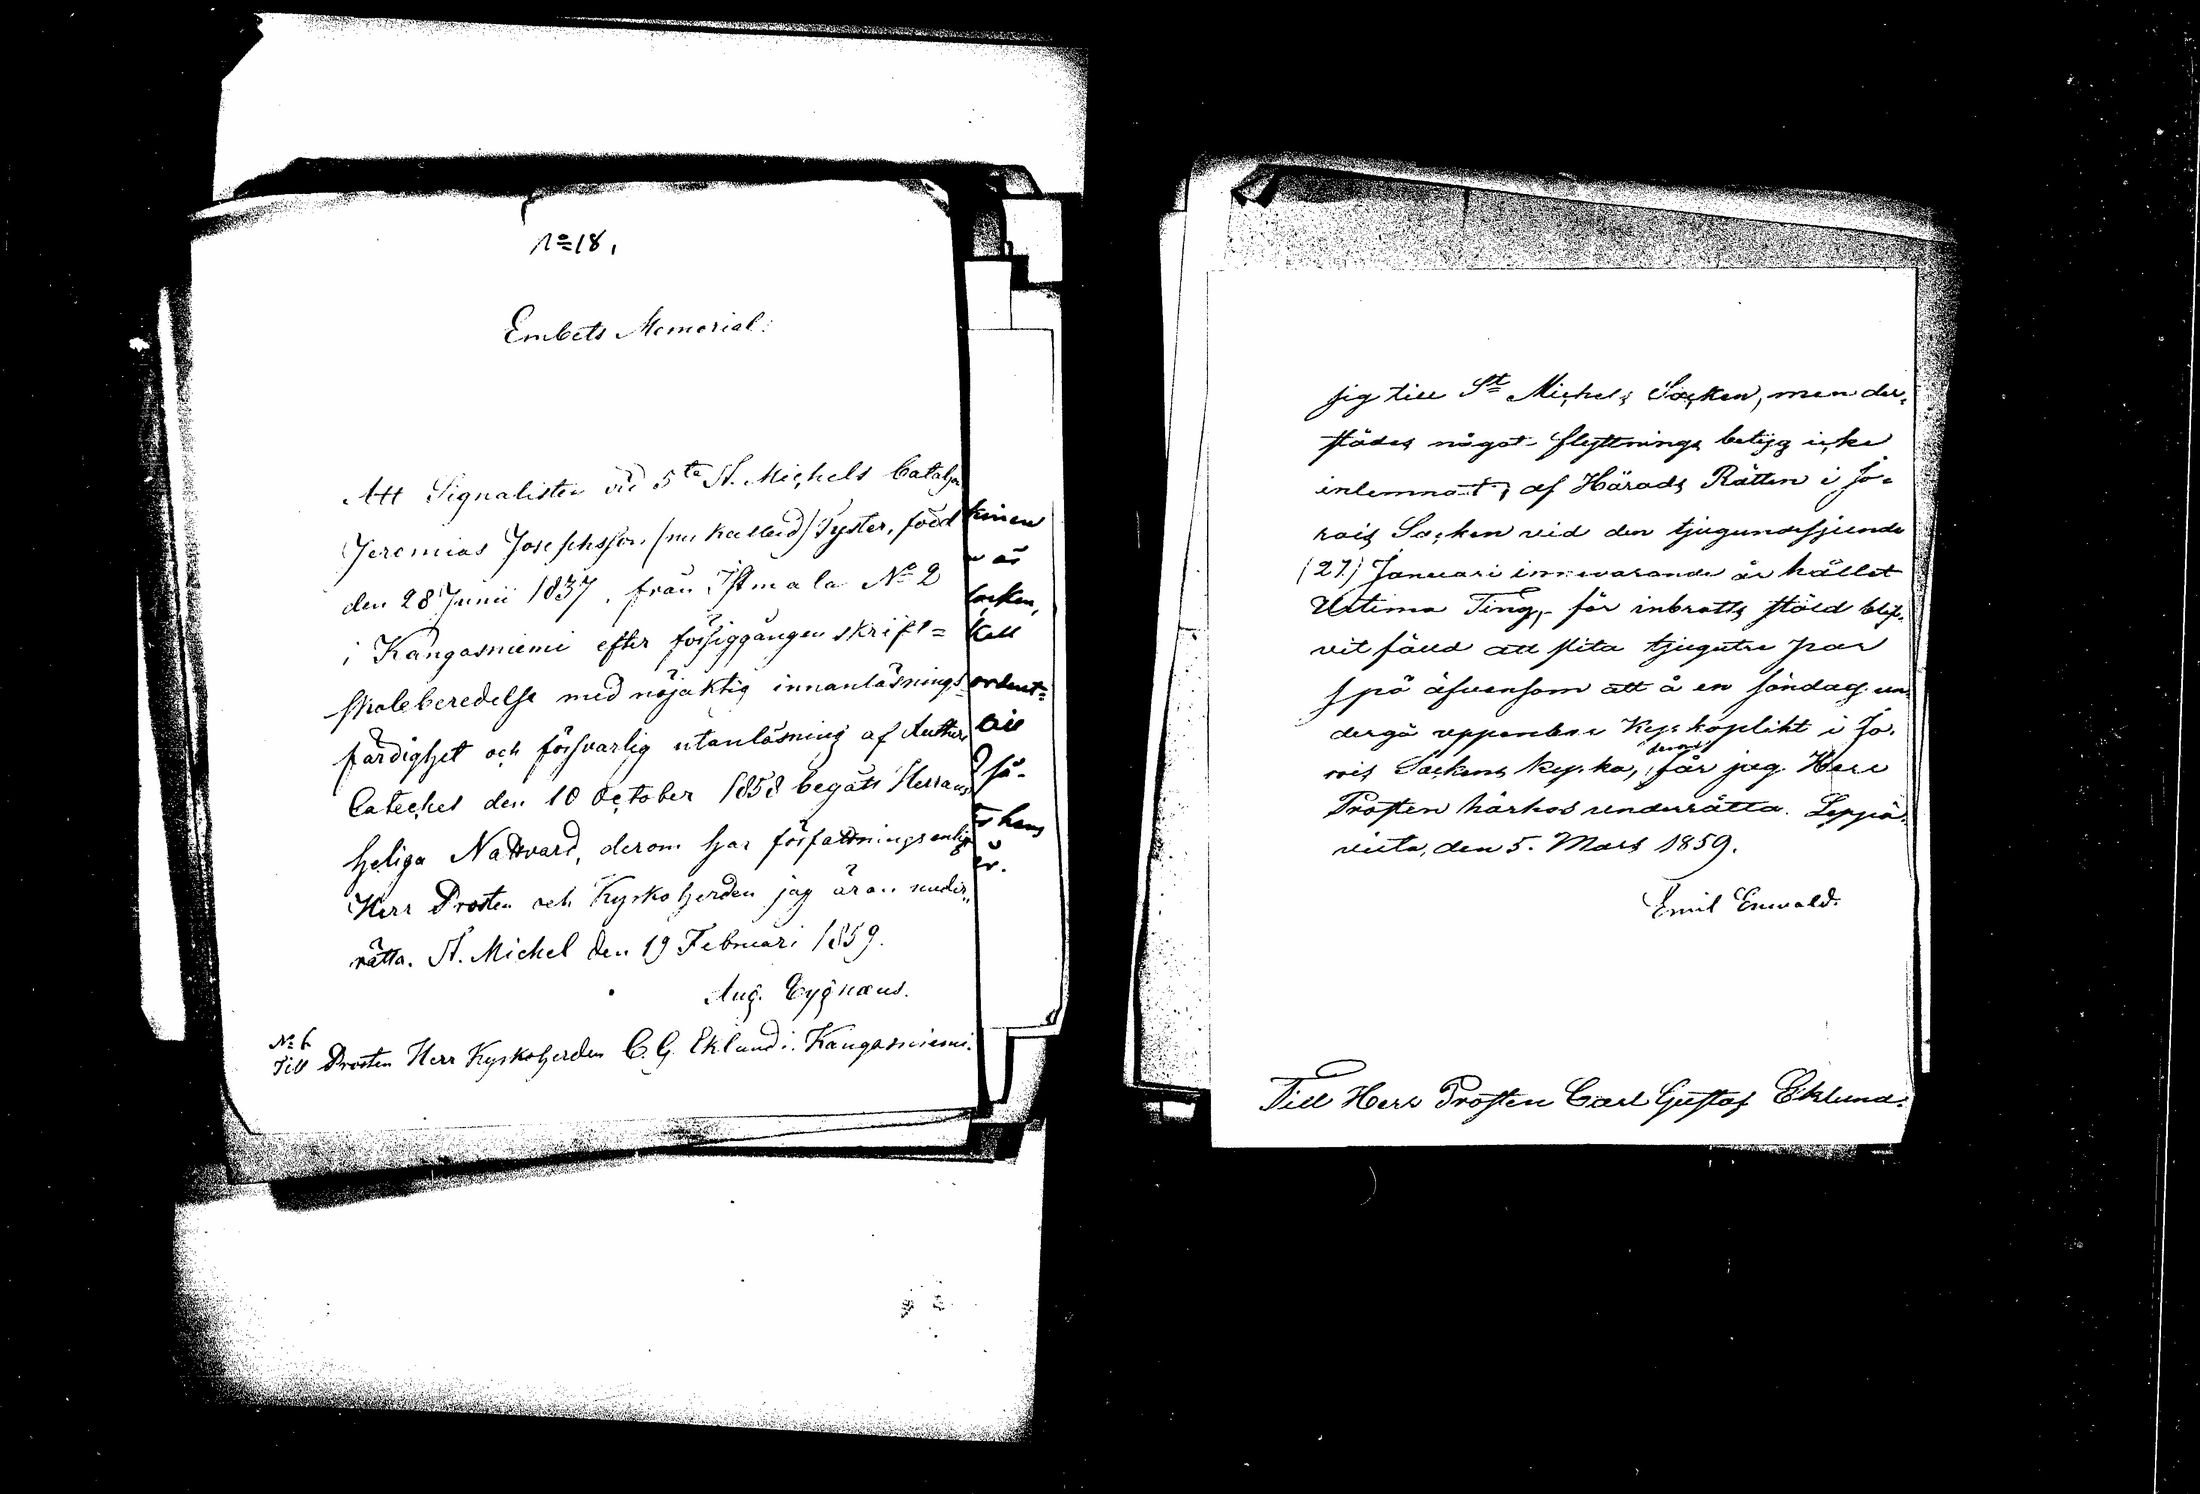 No 18,
Embets Memorial:
Att Signalisten vid 5te St. Michels Batalj
Jeremias Josephsson (nu kallad) Tyster, född
den 28 Junii 1837, från Istmala No 2
i Kangasniemi efter försiggången skrift=
skoleberedelse med nöjaktig innanläsnings
färdighet och försvarlig utanläsning af Lutheri
Cateches den 10 October 1858 begått Herrans
heliga Nattvard, derom har författningsenlig
Herr Prosten och Kyrkoherden jag äran under„
rätta. St. Michel den 19 Februari 1859.
Aug. Cygnæus.
No 6
Till Prosten Herr Kyrkoherden C. G. Eklund i Kangasniemi.
kinen
är
Socken,
ordent=
så-
hans
är.
sig till St Michels Socken, men der„
städes något flyttnings betyg icke
inlemnat, af Härads Rätten i Jo=
rois Socken vid den tjugundesjunde
(27) Januari innevarande år hållet
Urtima Ting, för inbrotts stöld blif„
vit fälld att slita tjugutre par
spö äfvensom att å en söndag un„
dergå uppenbar Kyrkoplikt i Jo„
rois Sockens kyrka, derom får jag Herr
Prosten härhos underrätta. Leppä„
virta, den 5. Mars 1859.
Emil Enwald.
Till Herr Prosten Carl Gustaf Eklund.